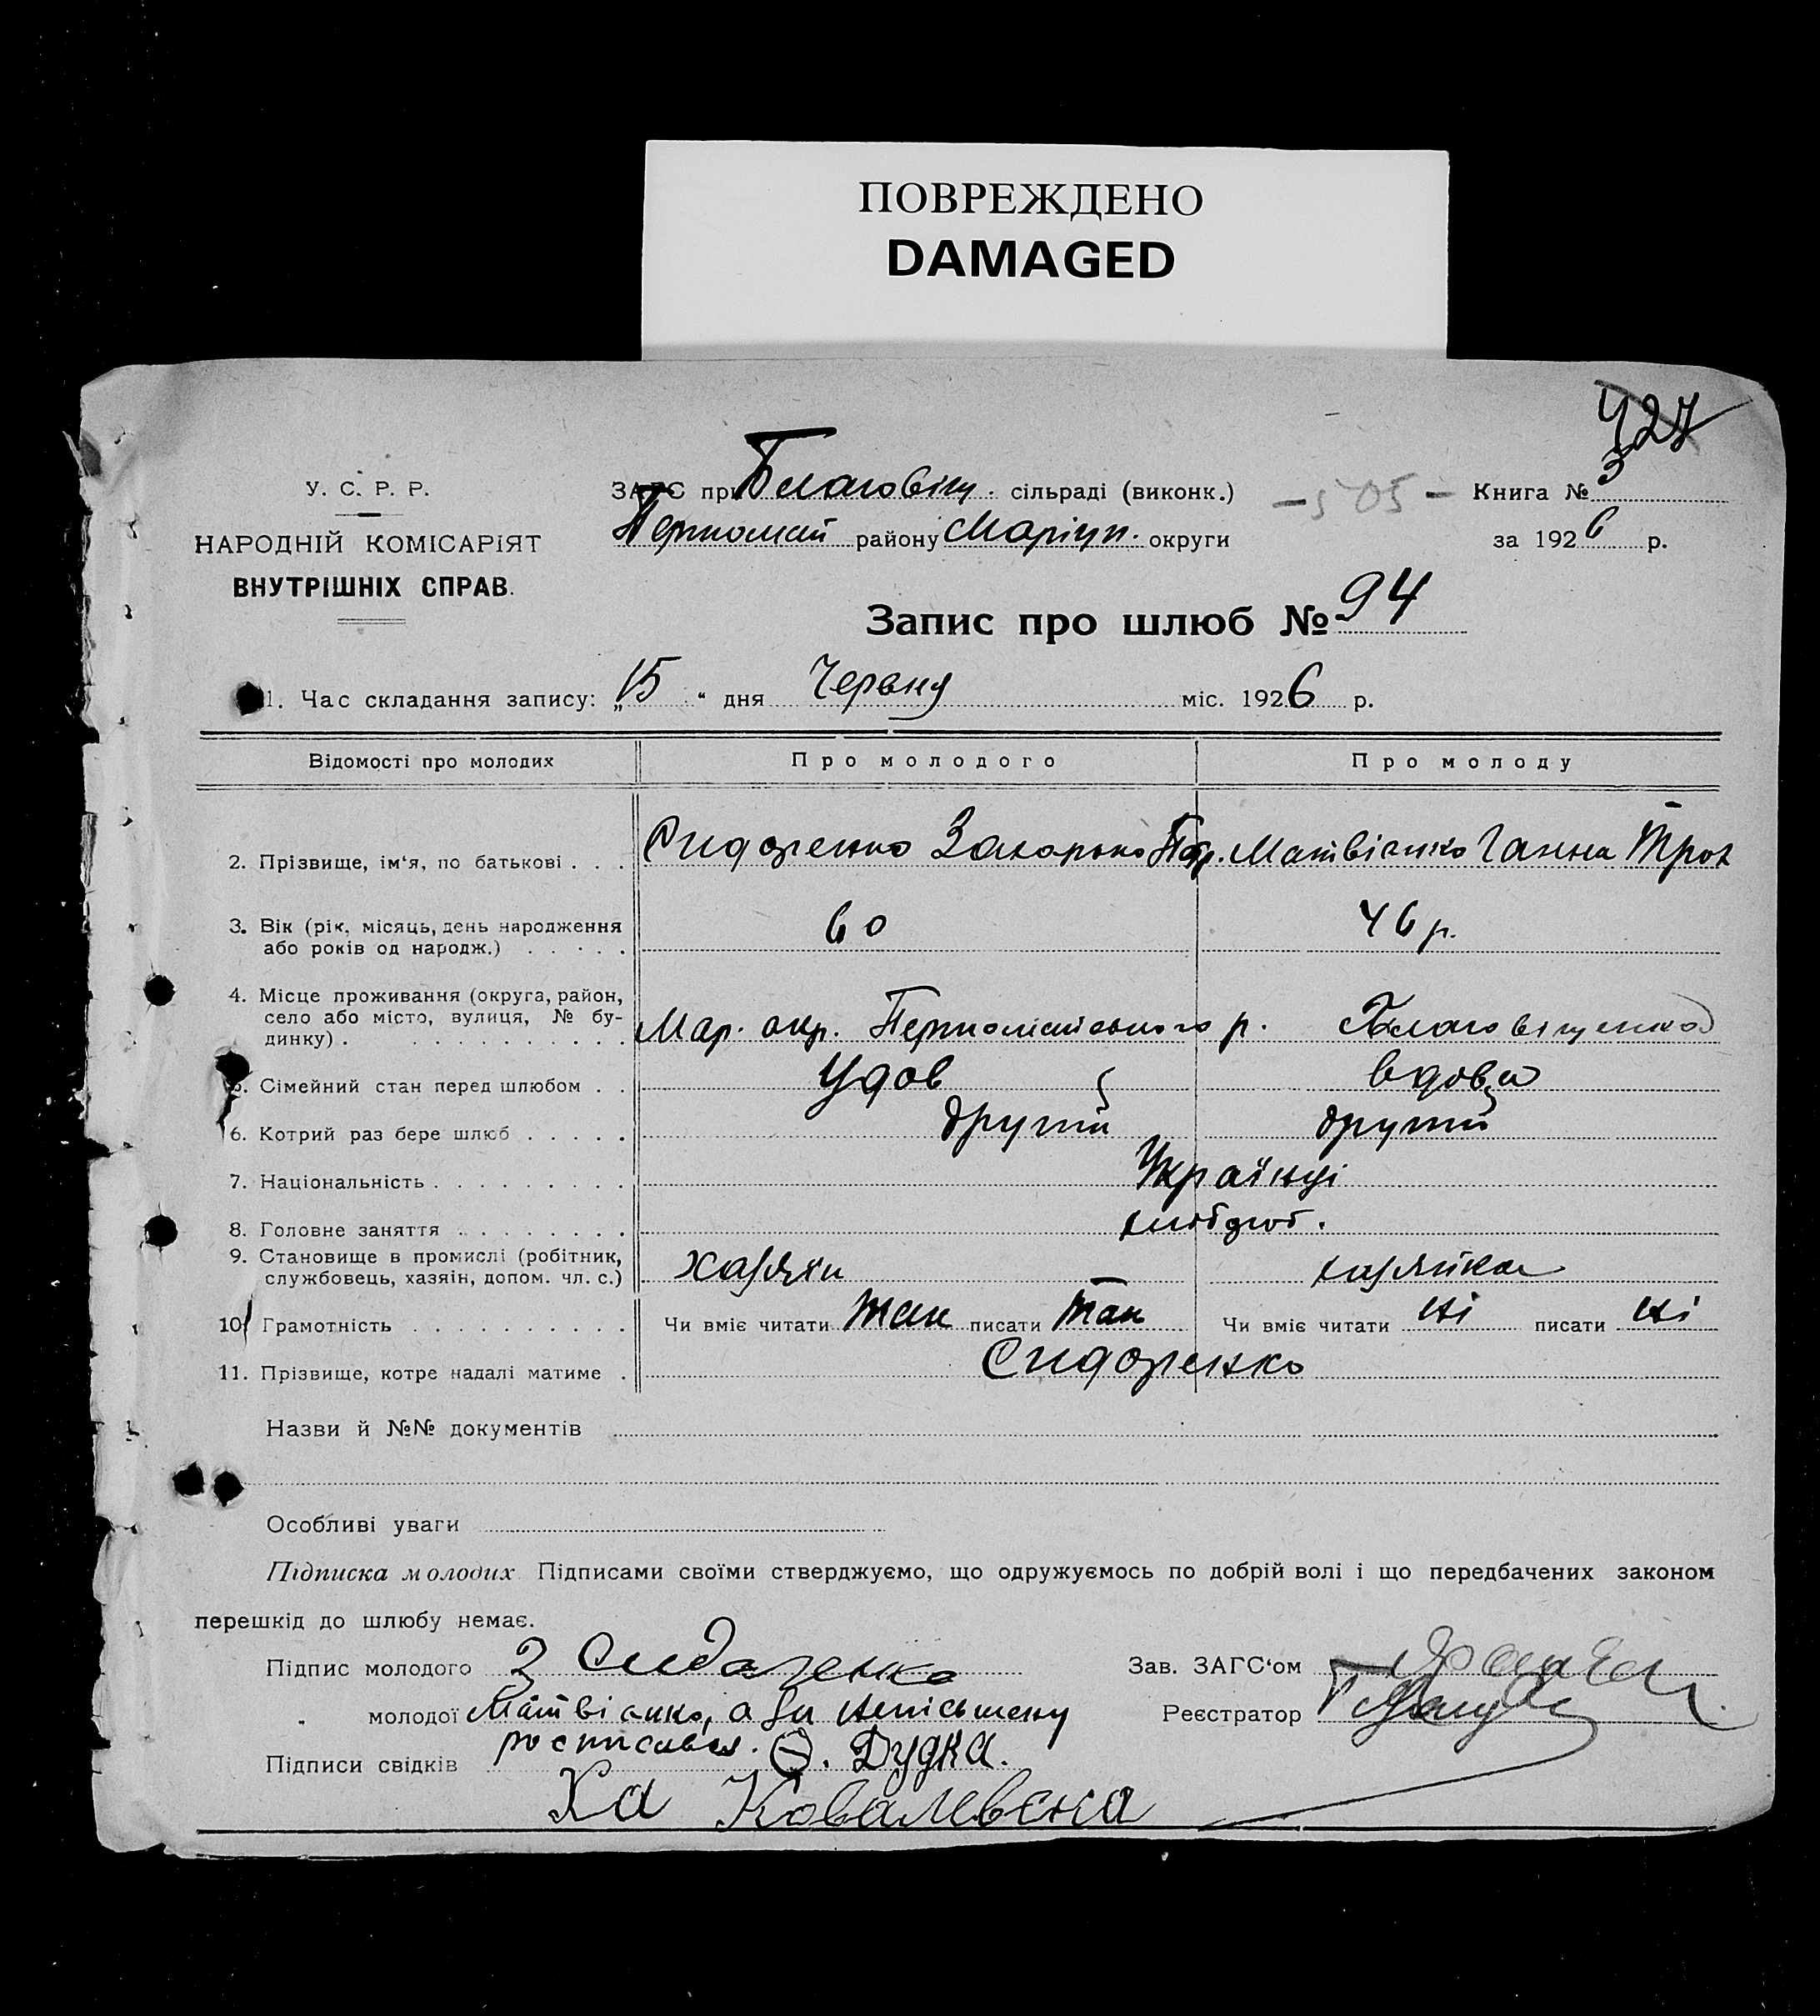 ПОВРЕЖДЕНО
DAMAGED
427
У. С. Р. Р.
НАРОДНІЙ КОМІСАРІЯТ
ВНУТРІШНІХ СПРАВ.
ЗАГС при Благовіщ. сільраді (виконк.)
Первомай району Маріуп. округи
– 505 –
Книга № 3
за 1926 р.
Запис про шлюб № 94
1. Час складання запису: „15 “ дня Червня міс. 1926 р.
Відомості про молодих Про молодого Про молоду
2. Прізвище, ім‘я, по батькові . . . Сидоренко Захарько Матвієнко Ганна Трох
3. Вік (рік, місяць, день народження
або років од народж.) . . . . . 60 46 р.
4. Місце проживання (округа, район,
село або місто, вулиця, № бу-
динку) . . . . . . . . . . . Мар. окр. Первомайського р. Благовіщенка
5. Сімейний стан перед шлюбом . . Удов вдова
6. Котрий раз бере шлюб . . . . . другий другий
7. Національність . . . . . . . . . Українці
8. Головне заняття . . . . . . . . хлібороб.
9. Становище в промислі (робітник,
службовець, хазяін, допом. чл. с.) хазяїн хазяйка
10. Грамотність . . . . . . . . . . Чи вміє читати так писати так Чи вміє читати ні писати ні
11. Прізвище, котре надалі матиме . Сидоренко
Назви й №№ документів
Особливі уваги
Підписка молодих Підписами своїми стверджуємо, що одружуємось по добрій волі і що передбачених законом
перешкід до шлюбу немає.
Підпис молодого З Сидаренко
Зав. ЗАГС‘ом
„ молодої Матвієнко, а за неписьмену
Реєстратор
росписався. Ѳ. Дудка.
Підписи свідків
Ха Ковалевска